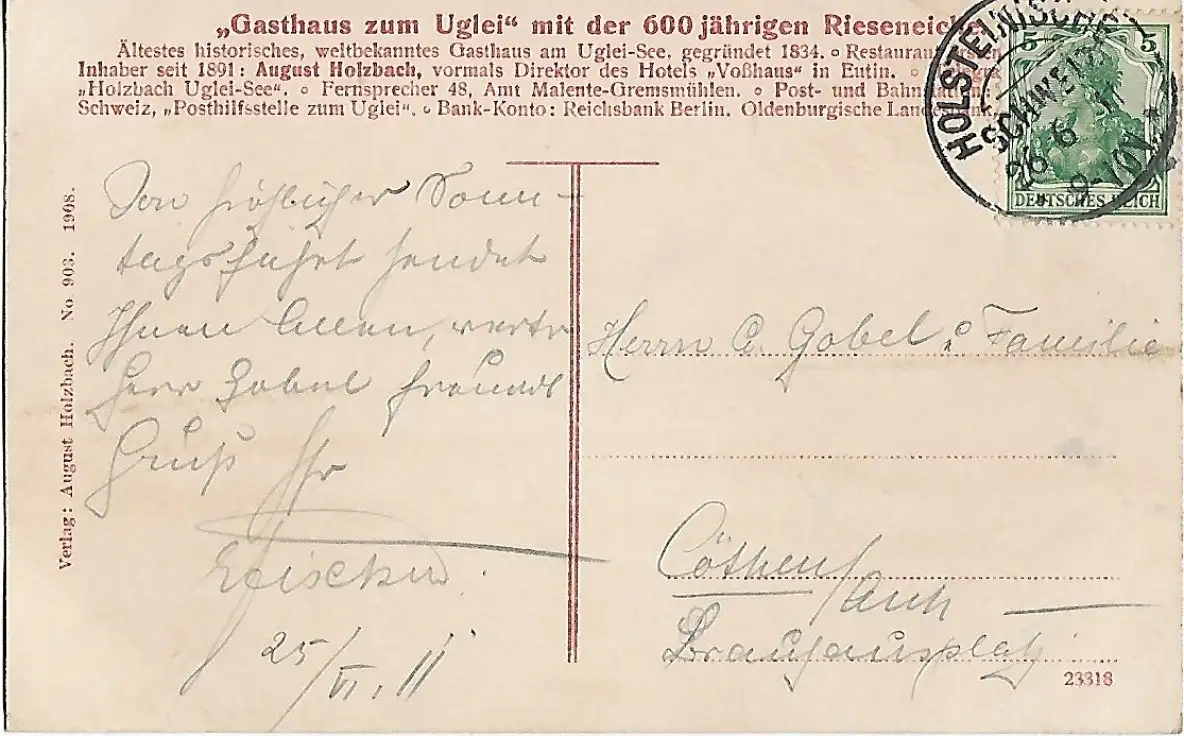 „Gasthaus zum Uglei“ mit der 600 jährigen Rieseneiche
Ältestes historisches, weltbekanntes Gasthaus am Uglei-See. gegründet 1834. o Restaurant
Inhaber seit 1891: August Holzbach, vormals Direktor des Hotels „Voßhaus“ in Eutin. o
„Holzbach Uglei-See“. o Fernsprecher 48, Amt Malente-Gremsmühlen. o Post- und Bahn
Schweiz, „Posthilfsstelle zum Uglei“. o Bank-Konto: Reichsbank Berlin. Oldenburgische
HOLSTEINISCHE
SCHWEIZ
26 6 11
5 5
DEUTSCHES REICH
Verlag: August Holzbach. No. 903. 1908.
Von fröhlicher Sonn-
tagsfahrt sendet
Ihnen Allen, werter
Herr Gobel freundl
Gruß Ihr
25/VI. 11
Herrn C. Gobel & Familie
Cöthen/Anh
Brauhausplatz
23318